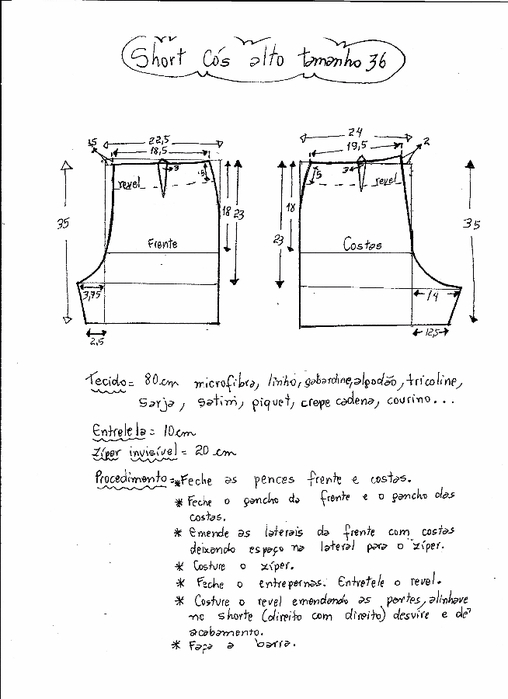 Short Cós alto tamanho 36
22,5
18,5
1,5
3
5
revel
35
18
23
Frente
3,75
2,5
24
19,5
2
5
3
revel
18
23
35
Costas
14
12,5
Tecido = 80cm microfibra, linho, gabardine, algodão, tricoline,
sarja, satim, piquet, crepe cadena, courino...
Entretela = 10cm
Zíper invisível = 20 cm
Procedimento = * Feche as pences frente e costas.
* Feche o gancho da frente e o gancho das
costas.
* Emende as laterais da frente com costas
deixando espaço na lateral para o zíper.
* Costure o zíper.
* Feche o entrepernas. Entretele o revel.
* Costure o revel emendando as partes, alinhave
no shorte (direito com direito) desvire e dê
acabamento.
* Faça a barra.